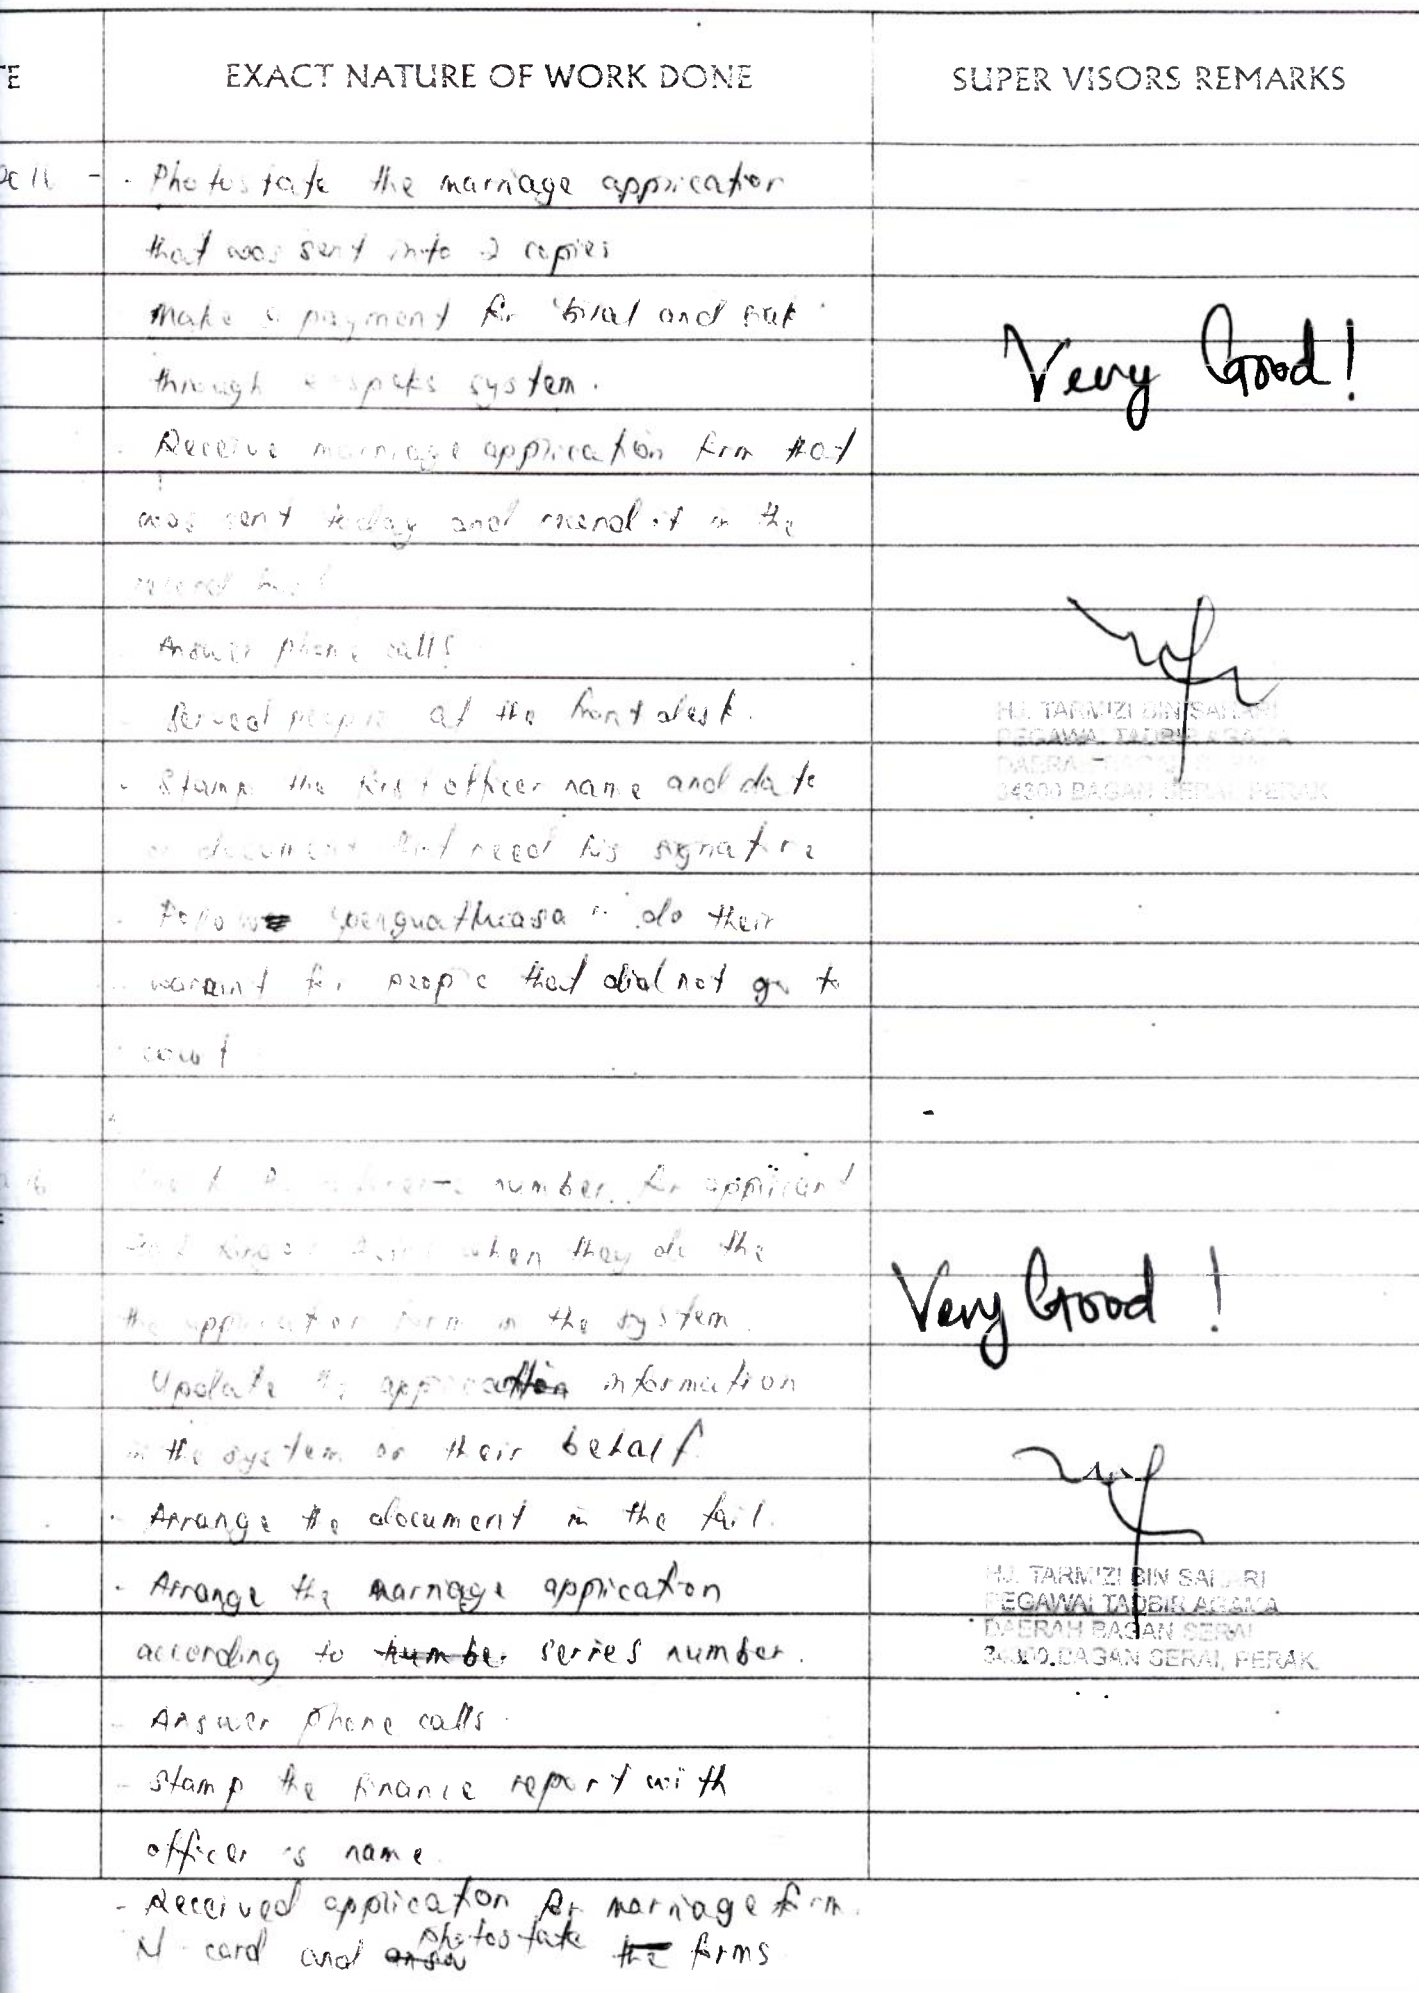 EXACT NATURE OF WORK DONE
SUPER VISORS REMARKS
- Photostate the marriage application
that was sent into 2 copies
Make a payment for and
through system.
Receive marriage application form that
was sent today and record it in the
record
Answer phone calls
Served people at the front desk.
- Stamp the first officer name and date
document that need his signature
do their
for people that did not go to
court
Very Good!
HJ. TARMIZI BIN SAHARI
PEGAWAI TADBIR AGAMA
DAERAH BAGAN SERAI
34300 BAGAN SERAI, PERAK
number for applicant
when they do the
the application form in the system.
Update information
in the system on their behalf.
- Arrange the document in the fail.
- Arrange the marriage application
according to series number.
- Answer phone calls.
- Stamp the finance report with
officer's name.
- Received application for marriage form.
card and photostate forms
Very Good !
HJ. TARMIZI BIN SAHARI
PEGAWAI TADBIR AGAMA
DAERAH BAGAN SERAI
34300 BAGAN SERAI, PERAK.